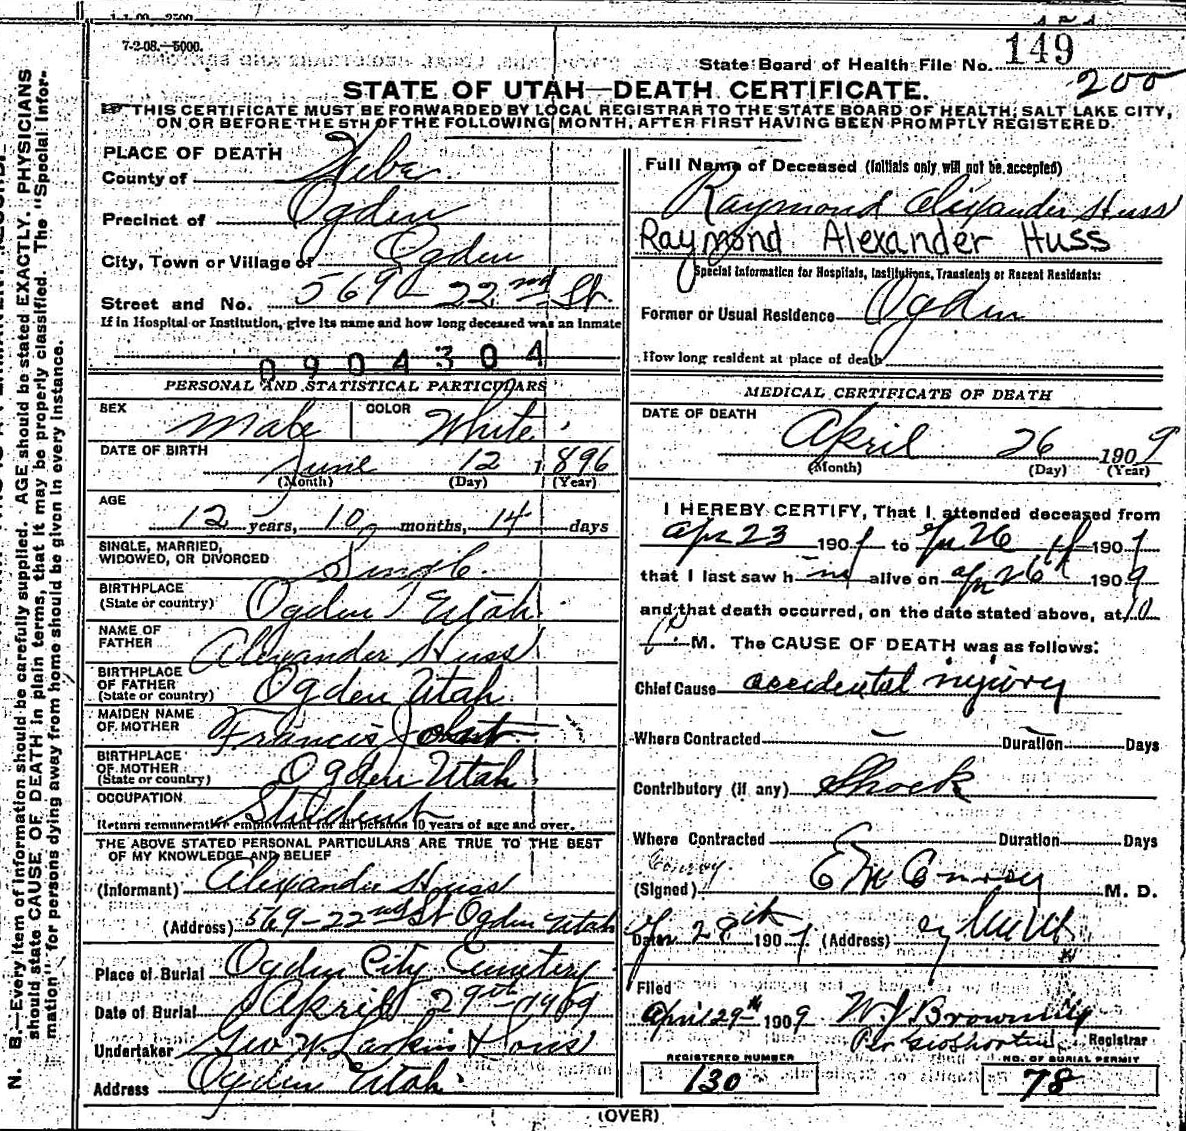 7-2-08.—5000.
State Board of Health File No. 149
200
STATE OF UTAH—DEATH CERTIFICATE.
THIS CERTIFICATE MUST BE FORWARDED BY LOCAL REGISTRAR TO THE STATE BOARD OF HEALTH, SALT LAKE CITY,
ON OR BEFORE THE 5TH OF THE FOLLOWING MONTH, AFTER FIRST HAVING BEEN PROMPTLY REGISTERED.
PLACE OF DEATH
County of Weber
Precinct of Ogden
City, Town or Village of Ogden
Street and No. 569 - 22nd St.
If in Hospital or Institution, give its name and how long deceased was an inmate
0904304
PERSONAL AND STATISTICAL PARTICULARS
SEX Male COLOR White
DATE OF BIRTH June 12 1896
(Month) (Day) (Year)
AGE
12 years, 10 months, 14 days
SINGLE, MARRIED,
WIDOWED, OR DIVORCED Single
BIRTHPLACE
(State or country) Ogden Utah
NAME OF
FATHER Alexander Huss
BIRTHPLACE
OF FATHER
(State or country) Ogden Utah
MAIDEN NAME
OF MOTHER Francis Jobst
BIRTHPLACE
OF MOTHER
(State or country) Ogden Utah
OCCUPATION Student
Return remunerative employment for all persons 10 years of age and over.
THE ABOVE STATED PERSONAL PARTICULARS ARE TRUE TO THE BEST
OF MY KNOWLEDGE AND BELIEF
(Informant) Alexander Huss
(Address) 569-22nd St Ogden Utah
Place of Burial Ogden City Cemetery
Date of Burial April 29th 1909
Undertaker Geo W Larkin & Sons
Address Ogden Utah
Full Name of Deceased (Initials only will not be accepted)
Raymond Alexander Huss
Raymond Alexander Huss
Special Information for Hospitals, Institutions, Transients or Recent Residents:
Former or Usual Residence Ogden
How long resident at place of death
MEDICAL CERTIFICATE OF DEATH
DATE OF DEATH
April 26 1909
(Month) (Day) (Year)
I HEREBY CERTIFY, That I attended deceased from
Apr 23 1909 to Apr 26th 1909
that I last saw him alive on Apr 26th 1909
and that death occurred, on the date stated above, at 10
P. M. The CAUSE OF DEATH was as follows:
Chief Cause accidental injury
Where Contracted Duration Days
Contributory (if any) Shock
Where Contracted Duration Days
Conroy
(Signed) E M Conroy M. D.
Date Apr 28th 1909 (Address)
Filed
April 29th 1909 W J Browning
Per Geo Shorten Registrar
REGISTERED NUMBER
130
NO. OF BURIAL PERMIT
78
(OVER)
N. B.—Every item of information should be carefully supplied. AGE should be stated EXACTLY. PHYSICIANS
should state CAUSE OF DEATH in plain terms, that it may be properly classified. The "Special Infor-
mation" for persons dying away from home should be given in every instance.